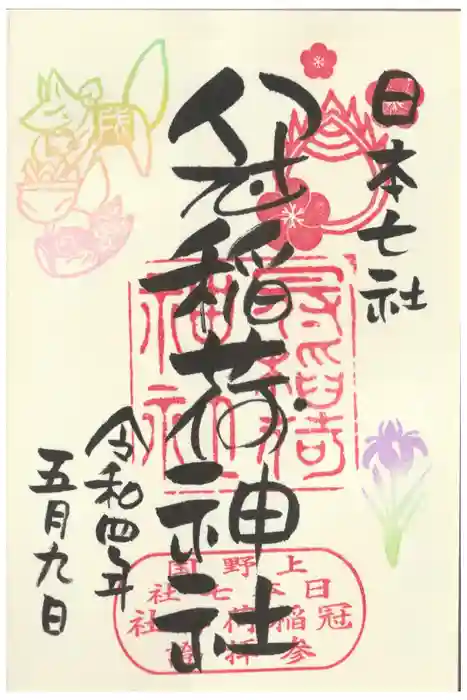 日本七社
冠稲荷神社
令和四年
五月九日
上野国
日本七社
冠稲荷社
参拝證